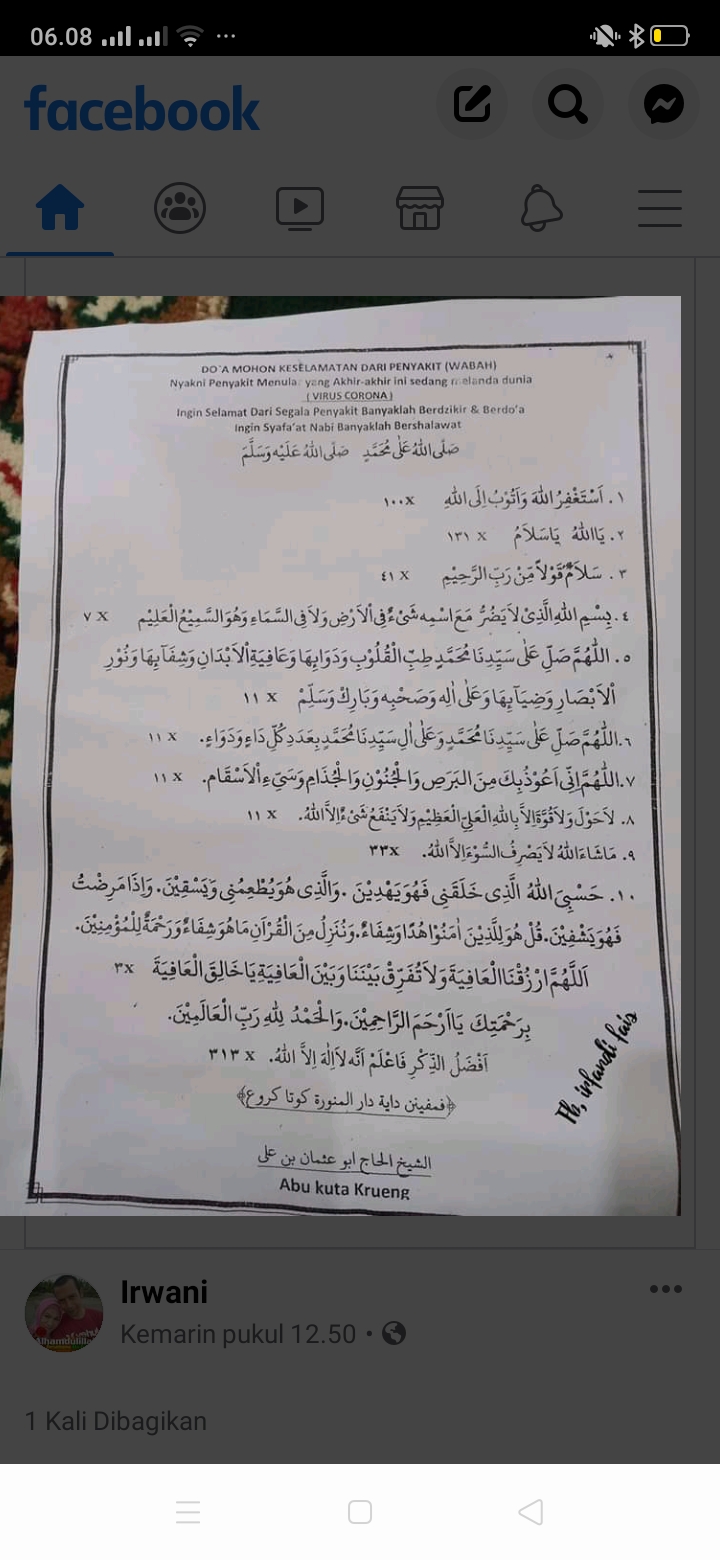 06.08
facebook
DO'A MOHON KESELAMATAN DARI PENYAKIT (WABAH)
Nyakni Penyakit Menular yang Akhir-akhir ini sedang melanda dunia
( VIRUS CORONA )
Ingin Selamat Dari Segala Penyakit Banyaklah Berdzikir & Berdo'a
Ingin Syafa'at Nabi Banyaklah Bershalawat
صَلَّى اللهُ عَلَى مُحَمَّدٍ صَلَّى اللهُ عَلَيْهِ وَسَلَّمَ
١. اَسْتَغْفِرُ اللهَ وَاَتُوْبُ اِلَى اللهِ ١٠٠x
٢. يَا اللهُ يَا سَلَامُ ١٣١ x
٣. سَلَامٌ قَوْلًا مِّنْ رَبِّ الرَّحِيْمِ ٤١ x
٤. بِسْمِ اللهِ الَّذِىْ لَا يَضُرُّ مَعَ اسْمِهِ شَىْءٌ فِى الْاَرْضِ وَلَا فِى السَّمَاءِ وَهُوَ السَّمِيْعُ الْعَلِيْمِ ٧ x
٥. اَللّٰهُمَّ صَلِّ عَلَى سَيِّدِنَا مُحَمَّدٍ طِبِّ الْقُلُوْبِ وَدَوَابِهَا وَعَافِيَةِ الْاَبْدَانِ وَشِفَآبِهَا وَنُوْرِ
الْاَبْصَارِ وَضِيَآبِهَا وَعَلَى اٰلِهِ وَصَحْبِهِ وَبَارِكْ وَسَلِّمْ ١١ x
٦. اَللّٰهُمَّ صَلِّ عَلَى سَيِّدِنَا مُحَمَّدٍ وَعَلَى اٰلِ سَيِّدِنَا مُحَمَّدٍ بِعَدَدِ كُلِّ دَاءٍ وَدَوَاءٍ. ١١ x
٧. اَللّٰهُمَّ اِنِّى اَعُوْذُ بِكَ مِنَ الْبَرَصِ وَالْجُنُوْنِ وَالْجُذَامِ وَسَيِّءِ الْاَسْقَامِ. ١١ x
٨. لَاحَوْلَ وَلَا قُوَّةَ اِلَّا بِاللهِ الْعَلِيِّ الْعَظِيْمِ وَلَا يَنْفَعُ شَىْءٌ اِلَّا اللهُ. ١١ x
٩. مَاشَاءَ اللهُ لَا يَصْرِفُ السُّوْءَ اِلَّا اللهُ. ٣٣x
١٠. حَسْبِيَ اللهُ الَّذِى خَلَقَنِى فَهُوَ يَهْدِيْنَ. وَالَّذِى هُوَ يُطْعِمُنِى وَيَسْقِيْنَ. وَاِذَا مَرِضْتُ
فَهُوَ يَشْفِيْنَ. قُلْ هُوَ لِلَّذِيْنَ اٰمَنُوْا هُدًا وَشِفَاءٌ. وَنُنَزِلُ مِنَ الْقُرْاٰنِ مَا هُوَ شِفَاءٌ وَرَحْمَةٌ لِلْمُؤْمِنِيْنَ.
اَللّٰهُمَّ ارْزُقْنَا الْعَافِيَةَ وَلَا تُفَرِّقْ بَيْنَنَا وَبَيْنَ الْعَافِيَةِ يَا خَالِقَ الْعَافِيَةَ ٣x
بِرَحْمَتِكَ يَا اَرْحَمَ الرَّاحِمِيْنَ. وَالْحَمْدُ لِلّٰهِ رَبِّ الْعَالَمِيْنَ.
اَفْضَلُ الذِّكْرِ فَاعْلَمْ اَنَّهُ لَا اِلٰهَ اِلَّا اللهُ. ٣١٣ x
﴿فمفينن داية دار المنورة كوتا كروع﴾
الشيخ الحاج ابو عثمان بن على
Abu kuta Krueng
Fb, irfandi faiz
Irwani
Kemarin pukul 12.50
1 Kali Dibagikan